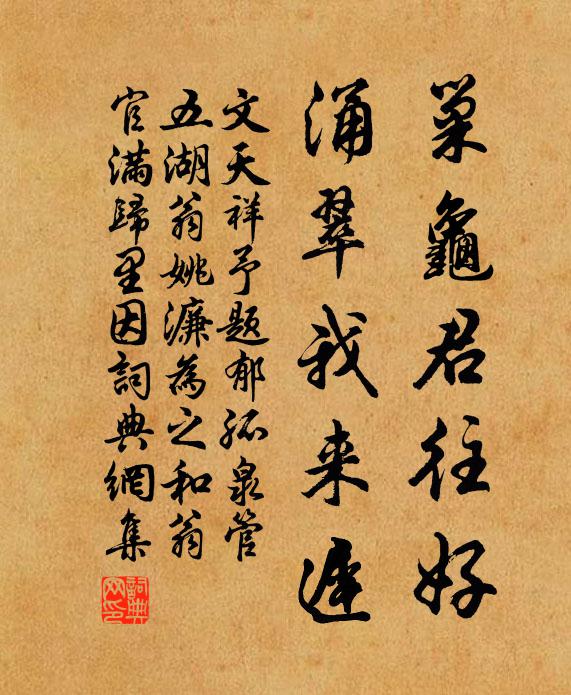 巢龜君往好
涌翠我来遲
文天祥予题郁孤泉管
五湖翁姚濂為之和翁
官滿歸里因詞典網集
詞典網印